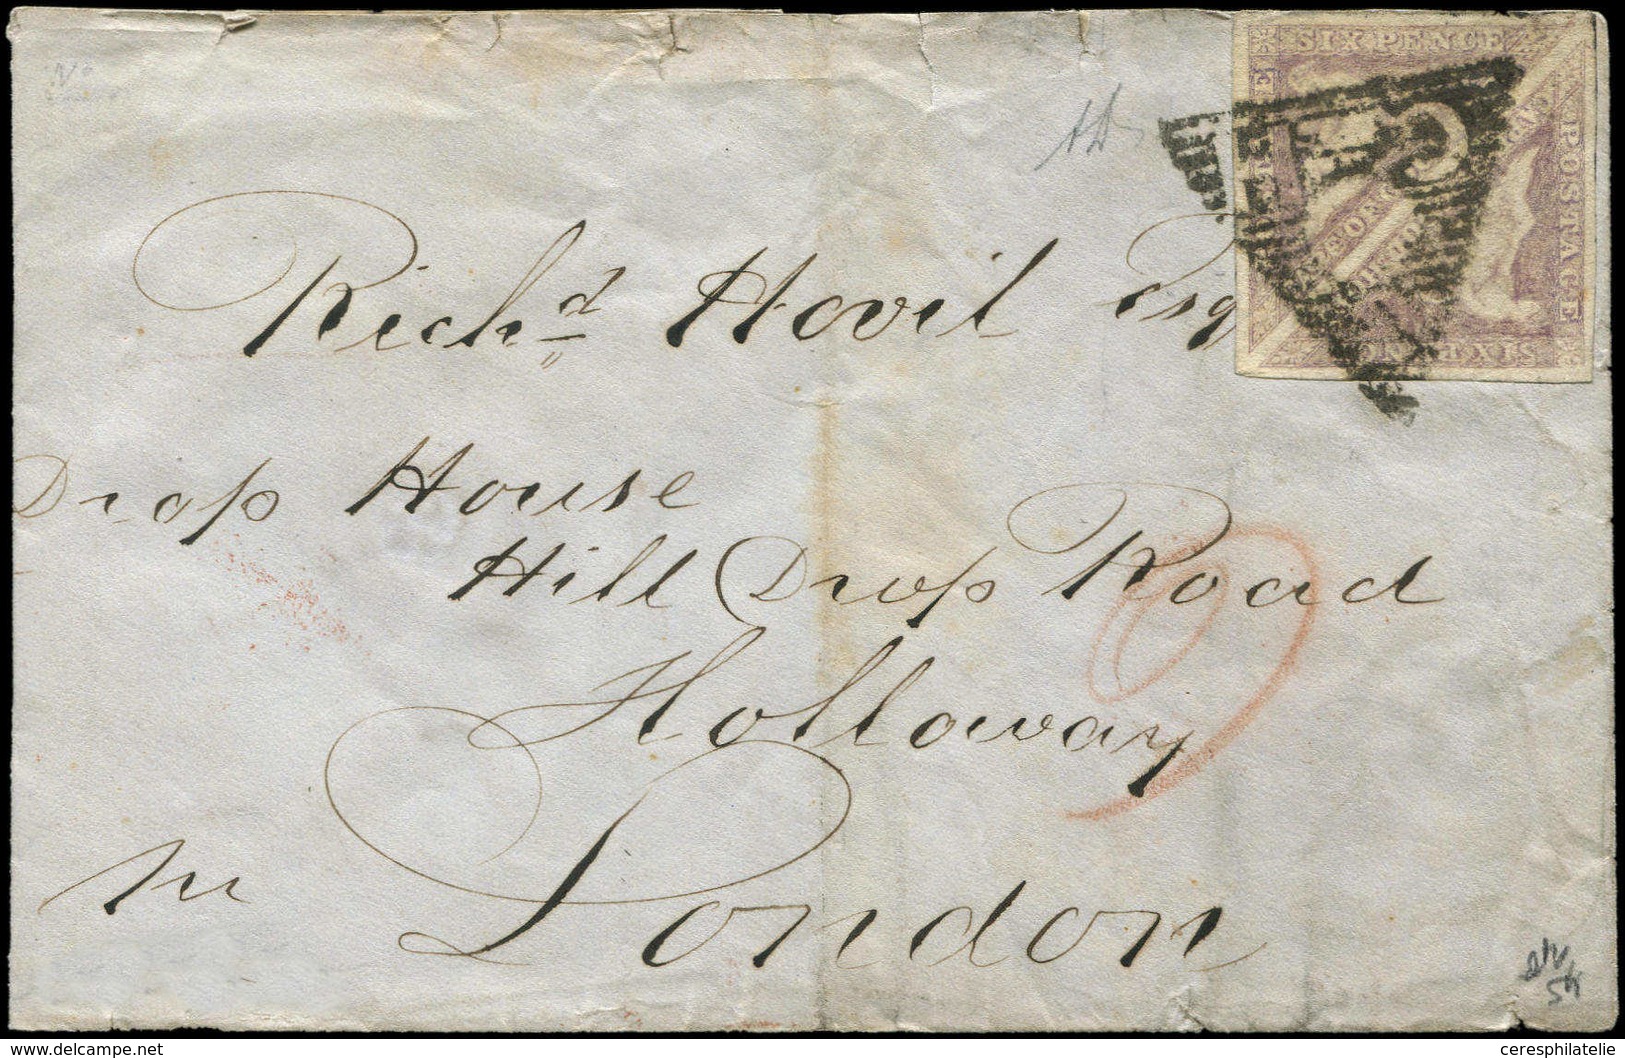 SIX PENCE
POSTAGE
Rich.d Hovil Esq
Drop House
Hill Drop Road
Holloway
London
9
delcampe.net
ceresphilatelie